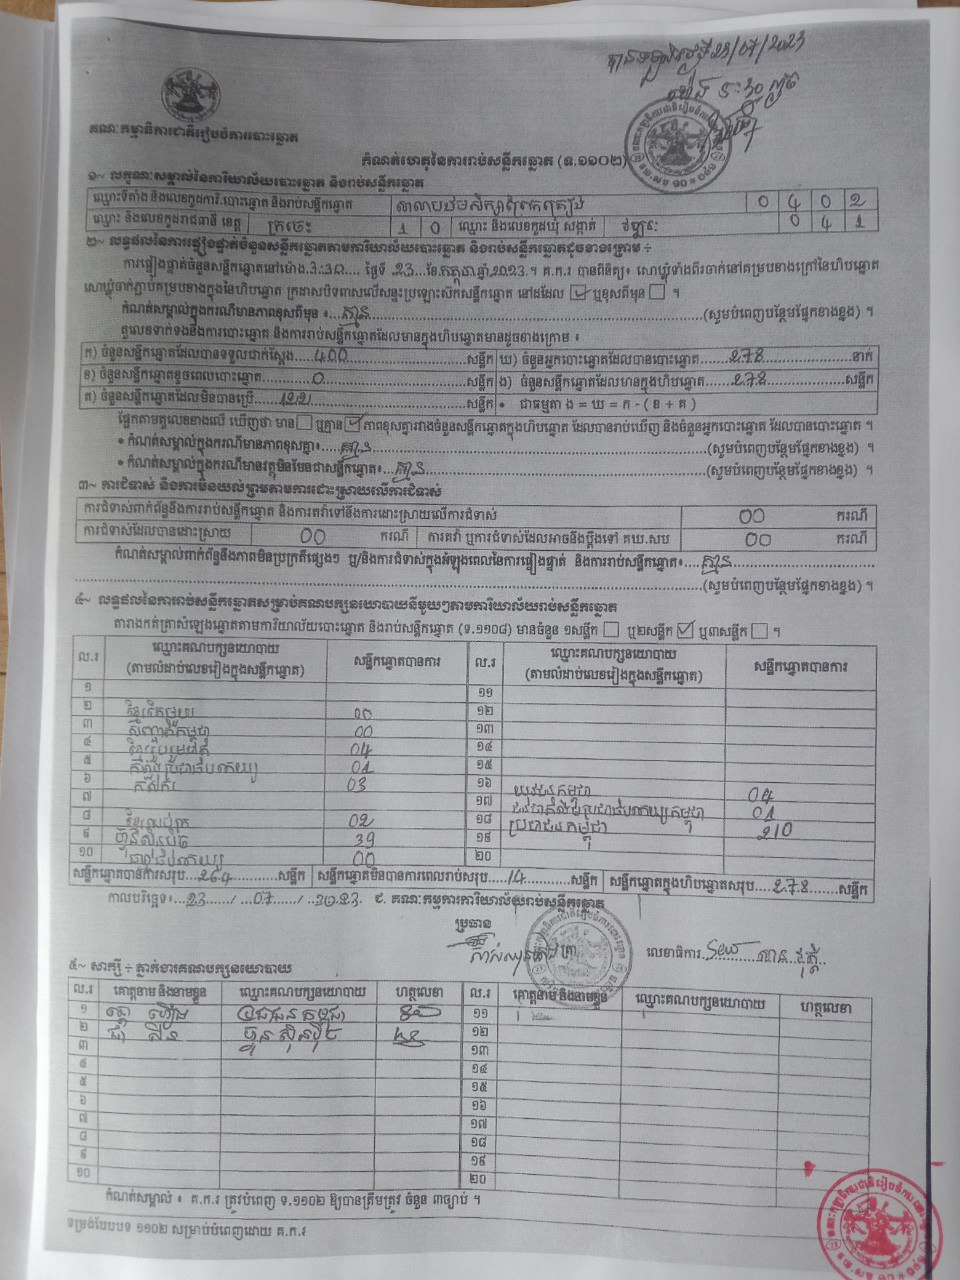 បានទទួលថ្ងៃទី 23/07/2023
ម៉ោង ៥:៣០ល្ងាច
គណៈកម្មាធិការជាតិរៀបចំការបោះឆ្នោត
កំណត់ហេតុនៃការរាប់សន្លឹកឆ្នោត (ទ.១១០២)
១~ លក្ខណៈសម្គាល់នៃការិយាល័យបោះឆ្នោត និងរាប់សន្លឹកឆ្នោត
ឈ្មោះទីតាំង និងលេខកូដការិ.បោះឆ្នោត និងរាប់សន្លឹកឆ្នោត 0 4 0 2
ឈ្មោះ និងលេខកូដរាជធានី ខេត្ត ក្រចេះ 1 0 ឈ្មោះ និងលេខកូដឃុំ សង្កាត់ 0 4 1
២~ លទ្ធផលនៃការផ្ទៀងផ្ទាត់ចំនួនសន្លឹកឆ្នោតតាមការិយាល័យបោះឆ្នោត និងរាប់សន្លឹកឆ្នោតដូចខាងក្រោម ÷
ការផ្ទៀងផ្ទាត់ចំនួនសន្លឹកឆ្នោតនៅម៉ោង 3:30 ថ្ងៃទី 23 ខែ កក្កដា ឆ្នាំ 2023 ។ គ.ក.រ បានពិនិត្យ សោឃ្លុំទាំងពីរចាក់នៅគម្របខាងក្រៅនៃហិបឆ្នោត
សោឃ្លុំចាក់ភ្ជាប់គម្របខាងក្នុងនៃហិបឆ្នោត ក្រដាសបិទពាសលើសន្ទះប្រឡោះស៊កសន្លឹកឆ្នោត នៅដដែល ☑ ឬខុសពីមុន ☐ ។
កំណត់សម្គាល់ក្នុងករណីមានភាពខុសពីមុន ៖ គ្មាន (សូមបំពេញបន្ថែមផ្នែកខាងខ្នង) ។
តួលេខទាក់ទងនឹងការបោះឆ្នោត និងការរាប់សន្លឹកឆ្នោតដែលមានក្នុងហិបឆ្នោតមានដូចខាងក្រោម ៖
ក) ចំនួនសន្លឹកឆ្នោតដែលបានទទួលជាក់ស្តែង 400 សន្លឹក ឃ) ចំនួនអ្នកបោះឆ្នោតដែលបានបោះឆ្នោត 278 នាក់
ខ) ចំនួនសន្លឹកឆ្នោតខូចពេលបោះឆ្នោត 0 សន្លឹក ង) ចំនួនសន្លឹកឆ្នោតដែលមានក្នុងហិបឆ្នោត 278 សន្លឹក
គ) ចំនួនសន្លឹកឆ្នោតដែលមិនបានប្រើ 122 សន្លឹក • ជាធម្មតា ង = ឃ = ក - ( ខ + គ )
ផ្អែកតាមតួលេខខាងលើ ឃើញថា មាន ☐ ឬគ្មាន ☑ ភាពខុសគ្នារវាងចំនួនសន្លឹកឆ្នោតក្នុងហិបឆ្នោត ដែលបានរាប់ឃើញ និងចំនួនអ្នកបោះឆ្នោត ដែលបានបោះឆ្នោត ។
• កំណត់សម្គាល់ក្នុងករណីមានភាពខុសគ្នា៖ គ្មាន (សូមបំពេញបន្ថែមផ្នែកខាងខ្នង) ។
• កំណត់សម្គាល់ក្នុងករណីមានវត្ថុមិនមែនជាសន្លឹកឆ្នោត៖ គ្មាន (សូមបំពេញបន្ថែមផ្នែកខាងខ្នង) ។
៣~ ការជំទាស់ និងការមិនយល់ព្រមតាមការដោះស្រាយលើការជំទាស់
ការជំទាស់ពាក់ព័ន្ធនឹងការរាប់សន្លឹកឆ្នោត និងការតវ៉ាទៅនឹងការដោះស្រាយលើការជំទាស់ 00 ករណី
ការជំទាស់ដែលបានដោះស្រាយ 00 ករណី ការតវ៉ា ឬការជំទាស់ដែលអាចនឹងប្តឹងទៅ គឃ.សប 00 ករណី
កំណត់សម្គាល់ពាក់ព័ន្ធនឹងភាពមិនប្រក្រតីផ្សេងៗ ឬ/និងការជំទាស់ក្នុងអំឡុងពេលនៃការផ្ទៀងផ្ទាត់ និងការរាប់សន្លឹកឆ្នោត៖ គ្មាន
(សូមបំពេញបន្ថែមផ្នែកខាងខ្នង) ។
៤~ លទ្ធផលនៃការរាប់សន្លឹកឆ្នោតសម្រាប់គណបក្សនយោបាយនីមួយៗតាមការិយាល័យរាប់សន្លឹកឆ្នោត
តារាងកត់ត្រាសំឡេងឆ្នោតតាមការិយាល័យបោះឆ្នោត និងរាប់សន្លឹកឆ្នោត (ទ.១១០៨) មានចំនួន ១សន្លឹក ☐ ឬ២សន្លឹក ☑ ឬ៣សន្លឹក ☐ ។
ល.រ ឈ្មោះគណបក្សនយោបាយ (តាមលំដាប់លេខរៀងក្នុងសន្លឹកឆ្នោត) សន្លឹកឆ្នោតបានការ ល.រ ឈ្មោះគណបក្សនយោបាយ (តាមលំដាប់លេខរៀងក្នុងសន្លឹកឆ្នោត) សន្លឹកឆ្នោតបានការ
១ ១១
២ ខ្មែរតែមួយ 00 ១២
៣ 00 ១៣
៤ 04 ១៤
៥ 01 ១៥
៦ 03 ១៦ យុវជនកម្ពុជា 04
៧ ១៧ 01
៨ 02 ១៨ ប្រជាជនកម្ពុជា 210
៩ ហ្វ៊ុនស៊ិនប៉ិច 39 ១៩
១០ 00 ២០
សន្លឹកឆ្នោតបានការសរុប 264 សន្លឹក សន្លឹកឆ្នោតមិនបានការពេលរាប់សរុប 14 សន្លឹក សន្លឹកឆ្នោតក្នុងហិបឆ្នោតសរុប 278 សន្លឹក
កាលបរិច្ឆេទ៖ 23 / 07 / 2023 ជ. គណៈកម្មការការិយាល័យរាប់សន្លឹកឆ្នោត
ប្រធាន
ត្រា លេខាធិការ
៥~ សាក្សី ÷ ភ្នាក់ងារគណបក្សនយោបាយ
ល.រ គោត្តនាម និងនាមខ្លួន ឈ្មោះគណបក្សនយោបាយ ហត្ថលេខា ល.រ គោត្តនាម និងនាមខ្លួន ឈ្មោះគណបក្សនយោបាយ ហត្ថលេខា
១ ប្រជាជនកម្ពុជា ១១
២ ហ្វ៊ុនស៊ិនប៉ិច ១២
៣ ១៣
៤ ១៤
៥ ១៥
៦ ១៦
៧ ១៧
៨ ១៨
៩ ១៩
១០ ២០
កំណត់សម្គាល់ ៖ គ.ក.រ ត្រូវបំពេញ ទ.១១០២ ឱ្យបានត្រឹមត្រូវ ចំនួន ៣ច្បាប់ ។
ទម្រង់បែបបទ ១១០២ សម្រាប់បំពេញដោយ គ.ក.រ